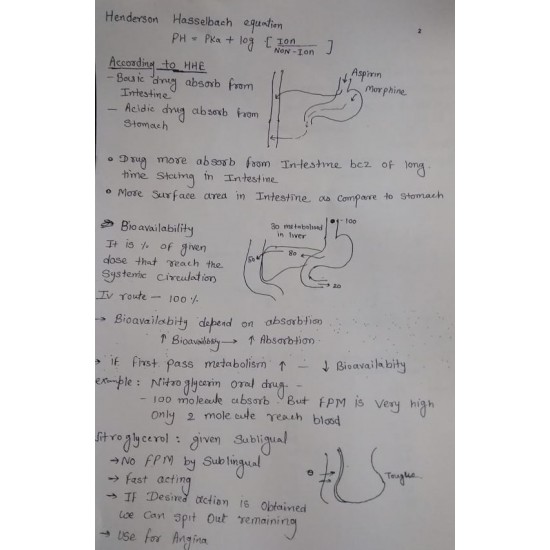 Henderson Hasselbach equation
PH = PKa + log [ Ion / NON-Ion ]
According to HHE
- Basic drug absorb from
Intestine
- Acidic drug absorb from
Stomach
Aspirin
Morphine
• Drug more absorb from Intestine bcz of long
time Staing in Intestine
• More Surface area in Intestine as compare to Stomach
Bioavailability
It is % of given
dose that reach the
Systemic Circulation
IV route - 100 %
100
metabolized
in liver
80
20
→ Bioavailabity depend on absorbtion
↑ Bioavailabity → ↑ Absorbtion
→ if first pass metabolism ↑ - ↓ Bioavailabity
example : Nitroglycerin oral drug. -
- 100 molecule absorb But FPM is very high
Only 2 molecule reach blood
Nitroglycerol : given Subligual
→ No FPM by Sublingual
→ fast acting
→ If Desired action is Obtained
we Can spit Out remaining
→ Use for Angina